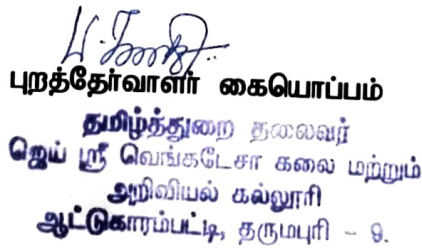 புறத்தேர்வாளர் கையொப்பம்
தமிழ்த்துறை தலைவர்
ஜெய் ஸ்ரீ வெங்கடேசா கலை மற்றும்
அறிவியல் கல்லூரி
ஆட்டுகாரம்பட்டி, தருமபுரி - 9.